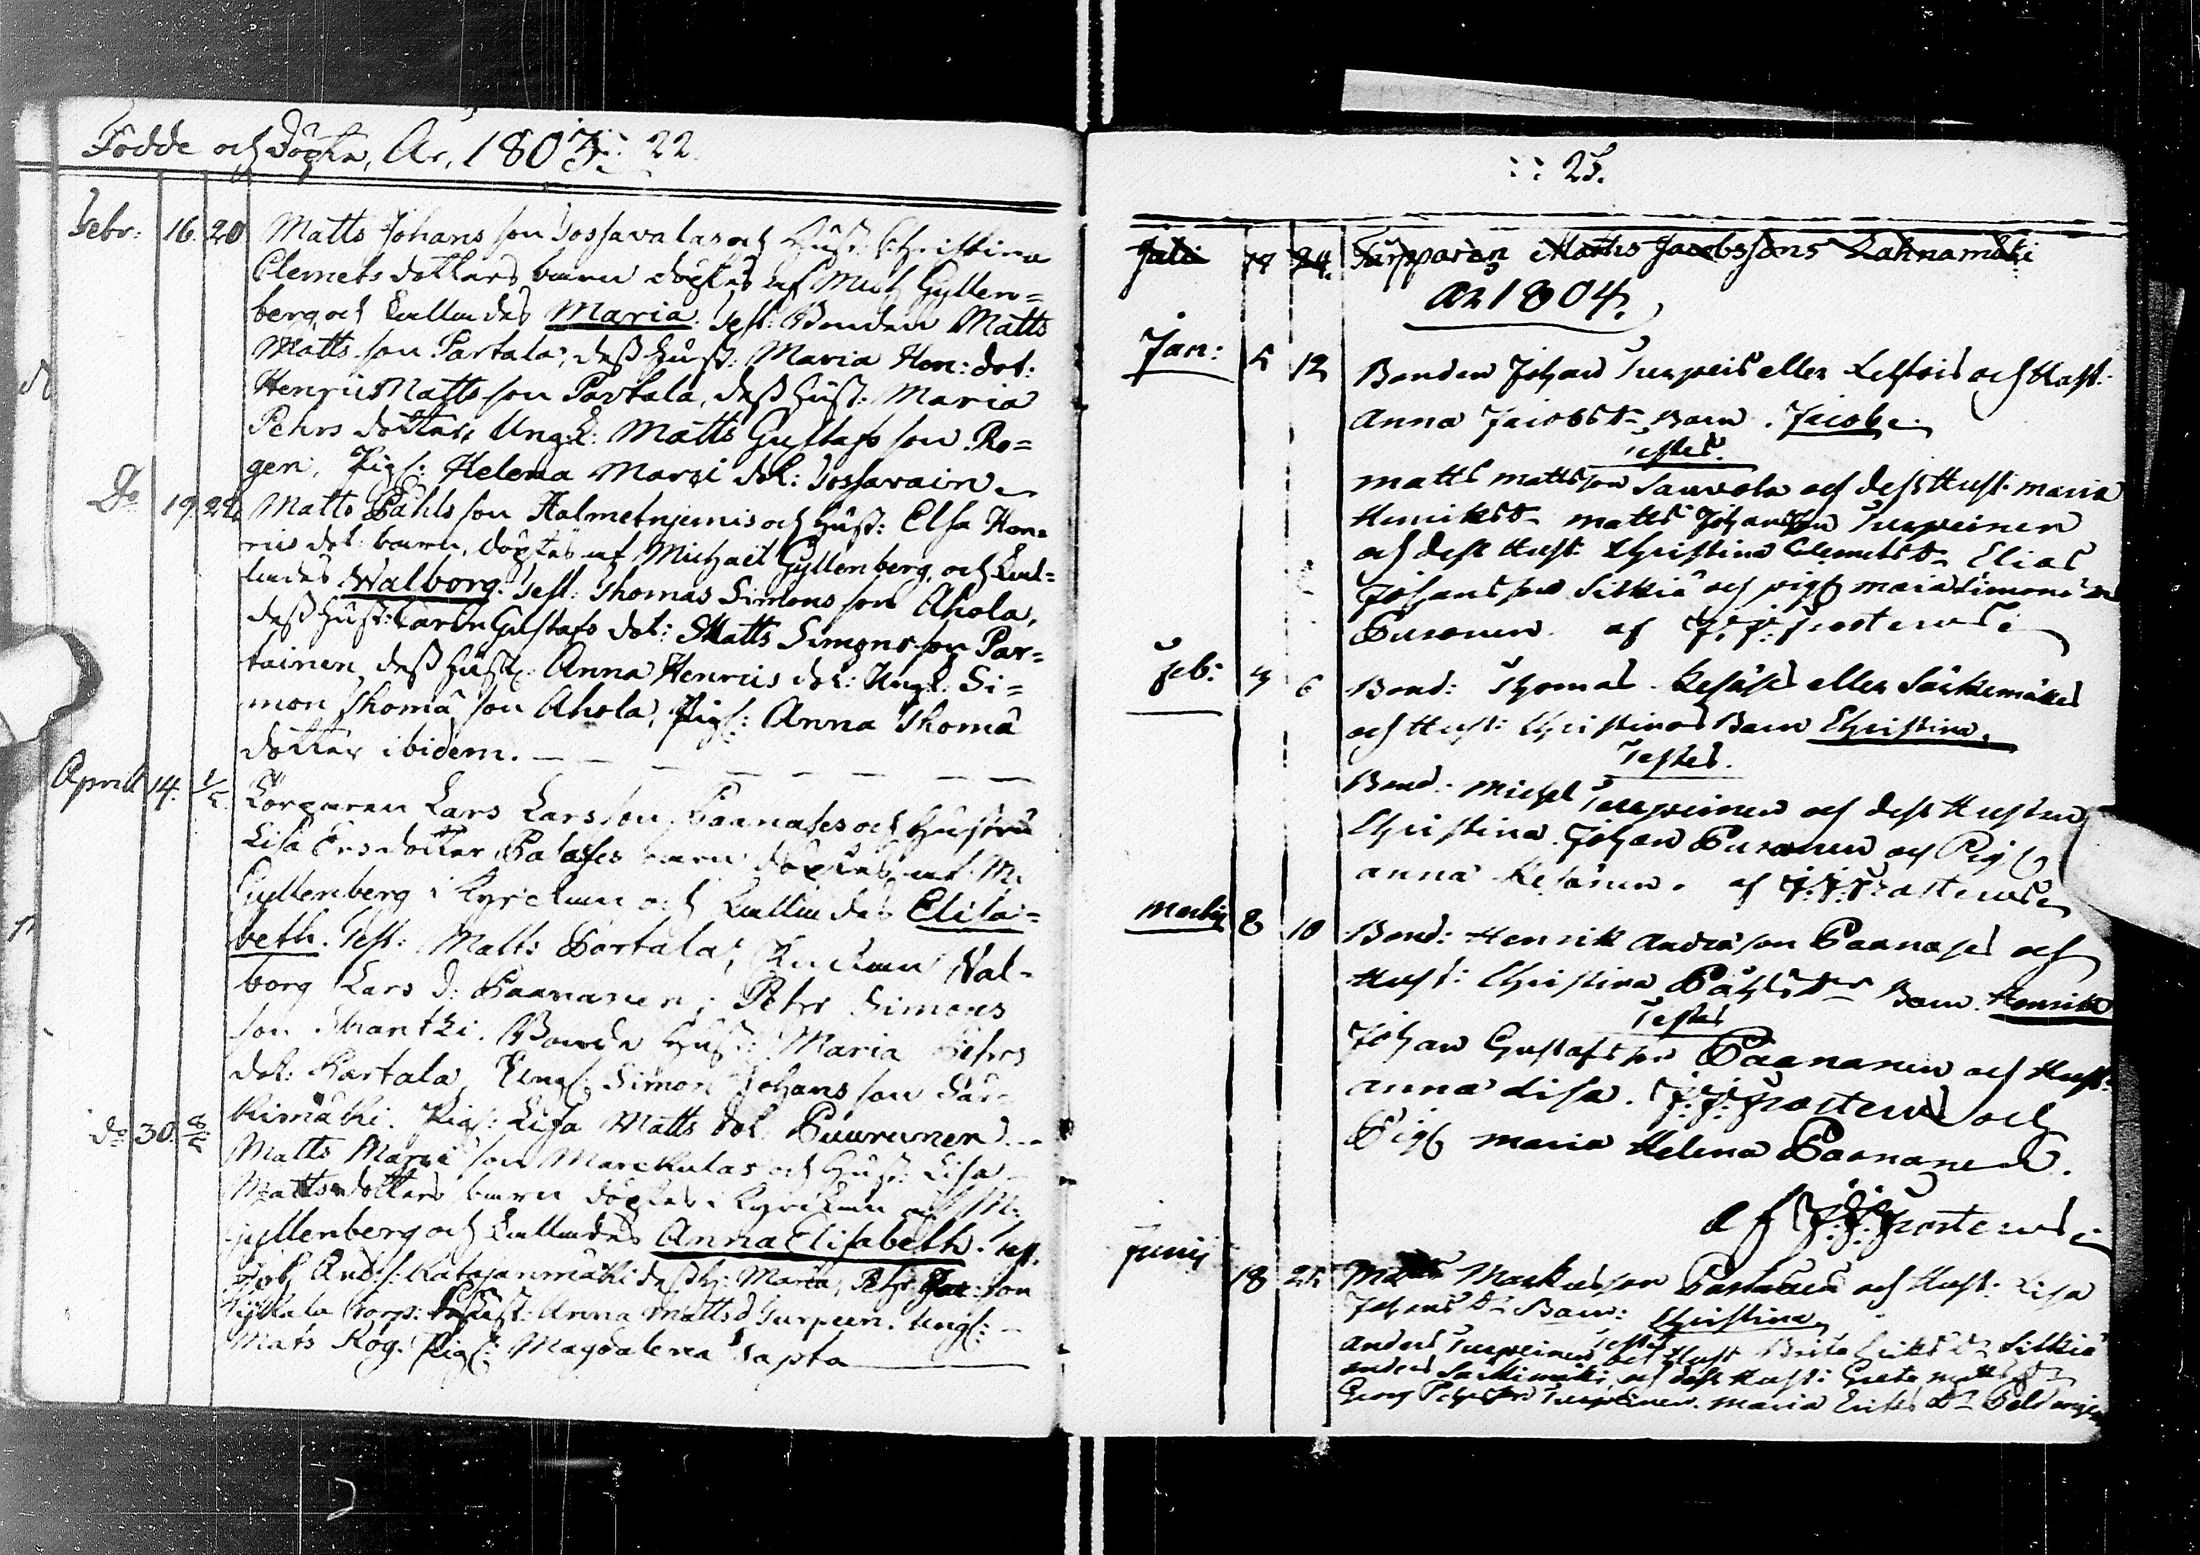 Födde och Döpta, År, 1803. 22.
Febr: 16. 20 Matts Johans son Jossavalas och Hust: Christina
Clemets dotters barn döptes af Mich Gyllen=
berg, och kallades Maria. Test: Bonden Matts
Matts son Partala, dess hust: Maria Hen: dot:
Henric Matts son Partala, dess hust: Maria
Pehrs dotter, Ungk: Matts Gustafs son Ro=
gen, Pig: Helena Marci dot: Jossavain
Do 19. 22 Matts Påhls son Halmetnjemis och Hust: Elsa Hen=
rics dot: barn, döptes af Michaël Gyllenberg, och kal=
lades Walborg. Test: Thomas Simons son Ahola,
dess hust: Carin Gustafs dot: Matts Simons son Par=
tainen, dess hust: Anna Henrics dot: Ungk: Si=
mon Thomæ son Ahola, Pig: Anna Thomæ
dotter ibidem.
April 14. 1/5 Torparen Lars Lars son Paanases och Hustru
Lisa Ers dotter barn döptes af M:
Gyllenberg i Kyrckan och kallades Elisa=
beth. Test: Matts Partala, Val=
borg Lars d: Paananen, Petr Simons
son Bonde Hust: Maria Pehrs
dot: Partala, Ungk: Simon Johans son Sär=
kimäki. Pig: Lisa Matts dot: Puurunen
do 30. 8/5 Matts Marci son Marckulas och Hust: Lisa
Matts dotters barn döptes i Kyrckan af M:
Gyllenberg och kallades Anna Elisabeth. Test.
And: s: Katajanmäki dess h: Maria, Pehr son
Torp: Hust: Anna Matts d Turpein. Ungk:
Mats Rog. Pig: Magdalena
25.
Juli 24. Torpparen Matts Jacobssons Lahnamäki
Ao 1804.
Jan: 5 12 Bonden Johan Turpeis eller och Hust:
Anna Jacobsdr Barn. Jacob
Testes.
Matts Mattsson Sauvola och dess Hust. Maria
Henriksdr Matts Johansson Turpeinen
och dess Hust. Christina Clemetsdr Elias
Johansson Silkiä och pig Maria Simonsdr
Pusonen. af J: J: Costenus
Feb: 4 6 Bond: Thomas Kesäses eller Särkimäkes
och Hust: Christinas Barn Christina.
Testes.
Bond. Michel Turpeinen och dess Hustru
Christina Johan Pusonen och Pig
Anna Kesänen. af J: J: Costenus
Martij 8 10 Bond: Henrik Andersson Paanases och
Hust: Christina Påhlsdr Barn Henrik
Testes
Johan Gustafsson Paananen och Hust:
Anna Lisa. J: J: Costenus och
Pig Maria Helena Paananen.
af J: J: Costenus
Junij 18 25 Matts Markusson och Hust: Lisa
Johansdr Barn: Christina
Testes
Anders Turpeinen och Hust Brita Eriksdr Silkiä
Anders Särkimäki, och dess Hust: Greta Mattsdr
Georg Pehrsson Turpeinen. Maria Eriks Dr